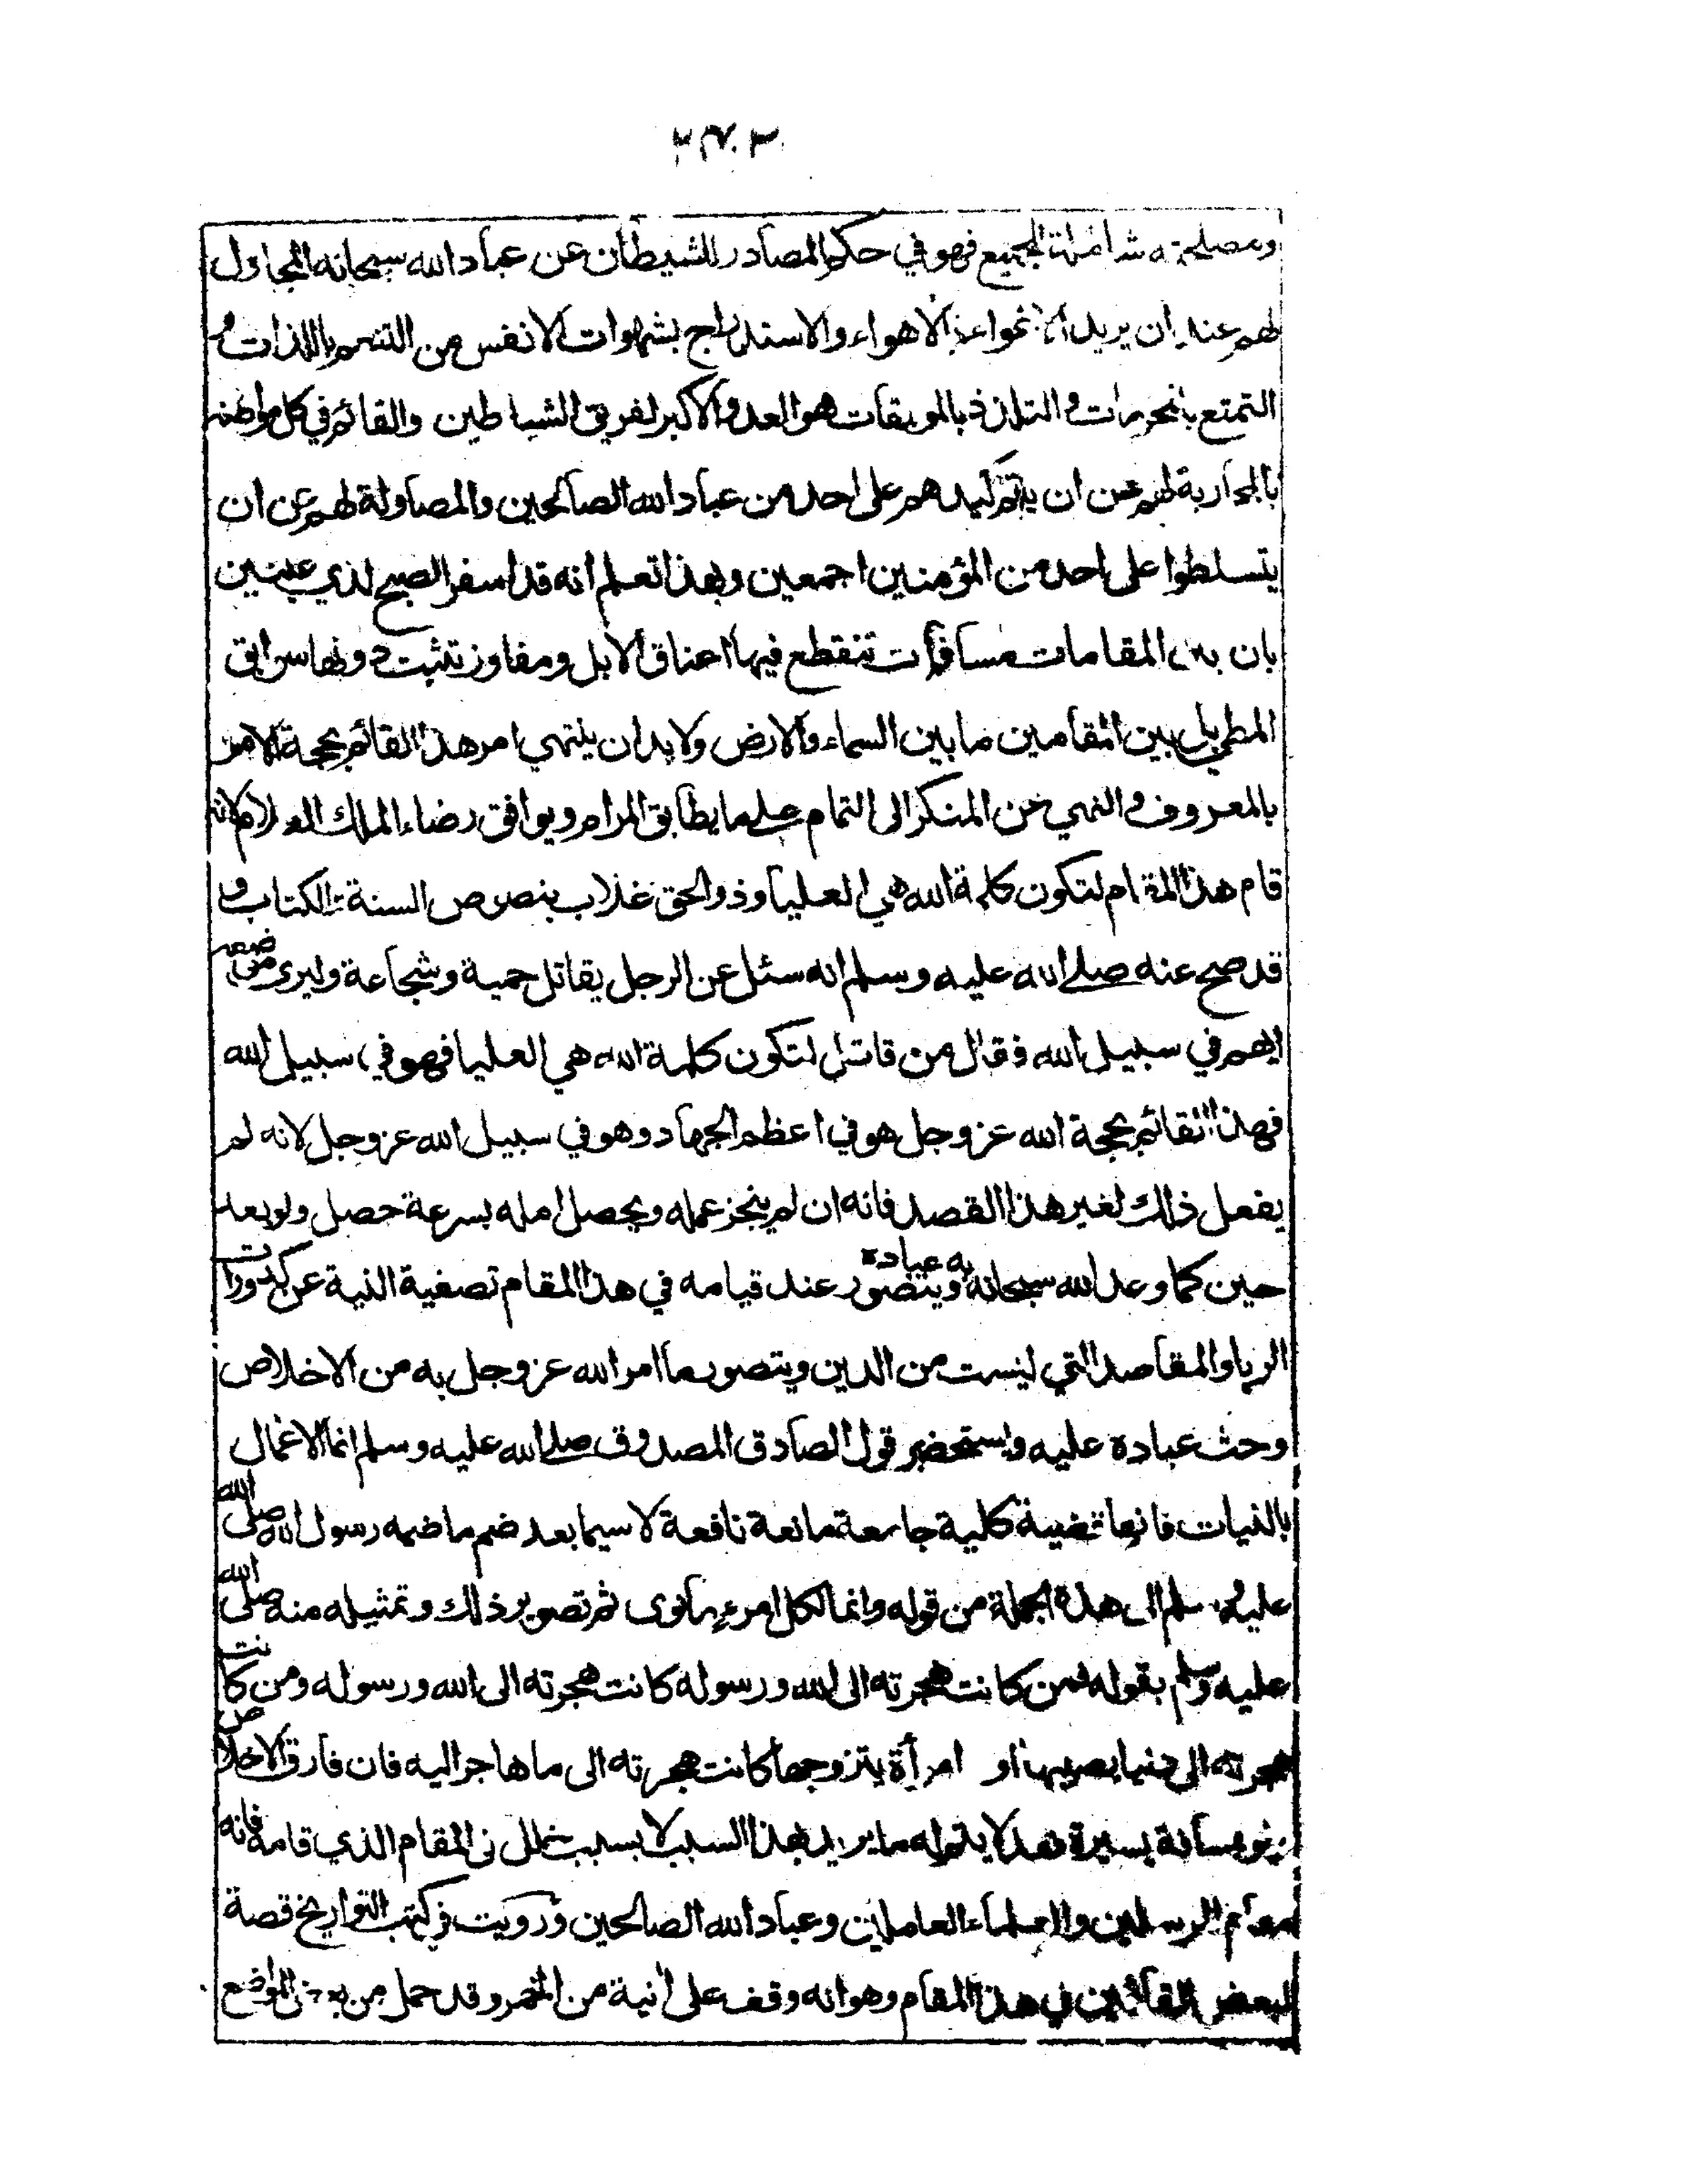 ومصلحته شاملة لجميع فهو في حكم المصادر للشيطان عن عباد الله سبحانه المجاول
لهم عند ان يريد الاغواء الاهواء والاستدراج بشهوات الانفس من التنسم باللذات و
التمتع بالمحرمات و التلذذ بالموبقات هو العدو الاكبر لفريق الشياطين والقائم في كل مواطنه
بالمحاربة لهم عن ان يتم كيدهم على احد من عباد الله الصالحين والمصاولة لهم عن ان
يتسلطوا على احد من المؤمنين اجمعين وبهذا تعلم انه قد اسفر الصبح لذي عينين
بان بين المقامات مسافات تنقطع فيها اعناق الابل ومفاوز تثبت دونها سوابق
المطي بل بين المقامين ما بين السماء والارض ولا بد ان ينتهي امر هذا القائم بحجة الامر
بالمعروف و النهي عن المنكر الى التمام على ما يطابق المرام ويوافق رضاء الملك العلام لانه
قام هذا المقام لتكون كلمة الله هي العليا وذو الحق غلاب بنصوص السنة الكتاب و
قد صح عنه صلى الله عليه وسلم انه سئل عن الرجل يقاتل حمية وشجاعة وليرى موضعه
ايهم في سبيل الله فقال من قاتل لتكون كلمة الله هي العليا فهو في سبيل الله
فهذا القائم بحجة الله عز وجل هو في اعظم الجهاد وهو في سبيل الله عز وجل لانه لم
يفعل ذلك لغير هذا القصد فانه ان لم ينجز عمله ويحصل امله بسرعة حصل ولو بعد
حين كما وعد الله سبحانه به عباده ويتصور عند قيامه في هذا المقام تصفية النية عن كدورات
الريا والمقاصد التي ليست من الدين ويتصور ما امر الله عز وجل به من الاخلاص
وحث عباده عليه ويستحضر قول الصادق المصدوق صلى الله عليه وسلم انما الاعمال
بالنيات فانها قضية كلية جامعة مانعة نافعة لا سيما بعد ضم ما ضمه رسول الله صلى الله
عليه وسلم الى هذه الجملة من قوله وانما لكل امرء ما نوى ثم تصوير ذلك وتمثيله منه صلى الله
عليه وسلم بقوله فمن كانت هجرته الى الله ورسوله كانت هجرته الى الله ورسوله ومن كانت
هجرته الى دنيا يصيبها او امرأة يتزوجها كانت هجرته الى ما هاجر اليه فان فارق الاخلاص
ولو مسافة يسيرة فقد لا يتم له ما يريد بهذا السبب لا بسبب خلل في المقام الذي قامه فانه
مقام المرسلين والعلماء العاملين وعباد الله الصالحين ورويت في كتب التواريخ قصة
لبعض القائمين في هذا المقام وهو انه وقف على انية من الخمر وقد حمل من بعض المواضع